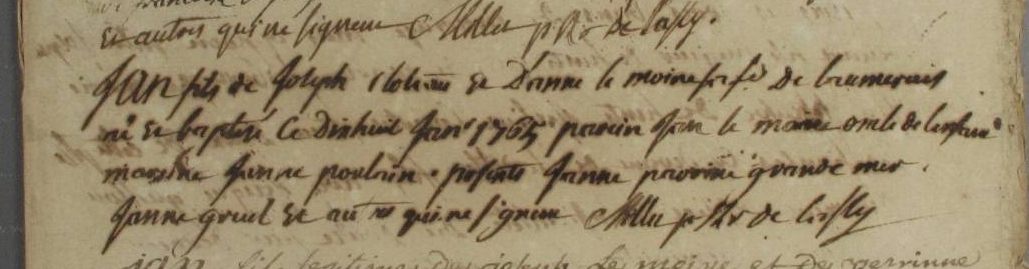 et autres qui ne signent Millet ptre R de Lassy.
Jan fils de Joseph et D'anne le moine sa fe de
né et baptisé Ce Dixhuit Janr 1765 parain Jan le moine oncle de l'enfant
maraine Janne poulain. presents Janne grande mer.
Janne gruel et autres qui ne signent ptre R de Lassy
jan fils legitime de joseph Le moine et De perrinne